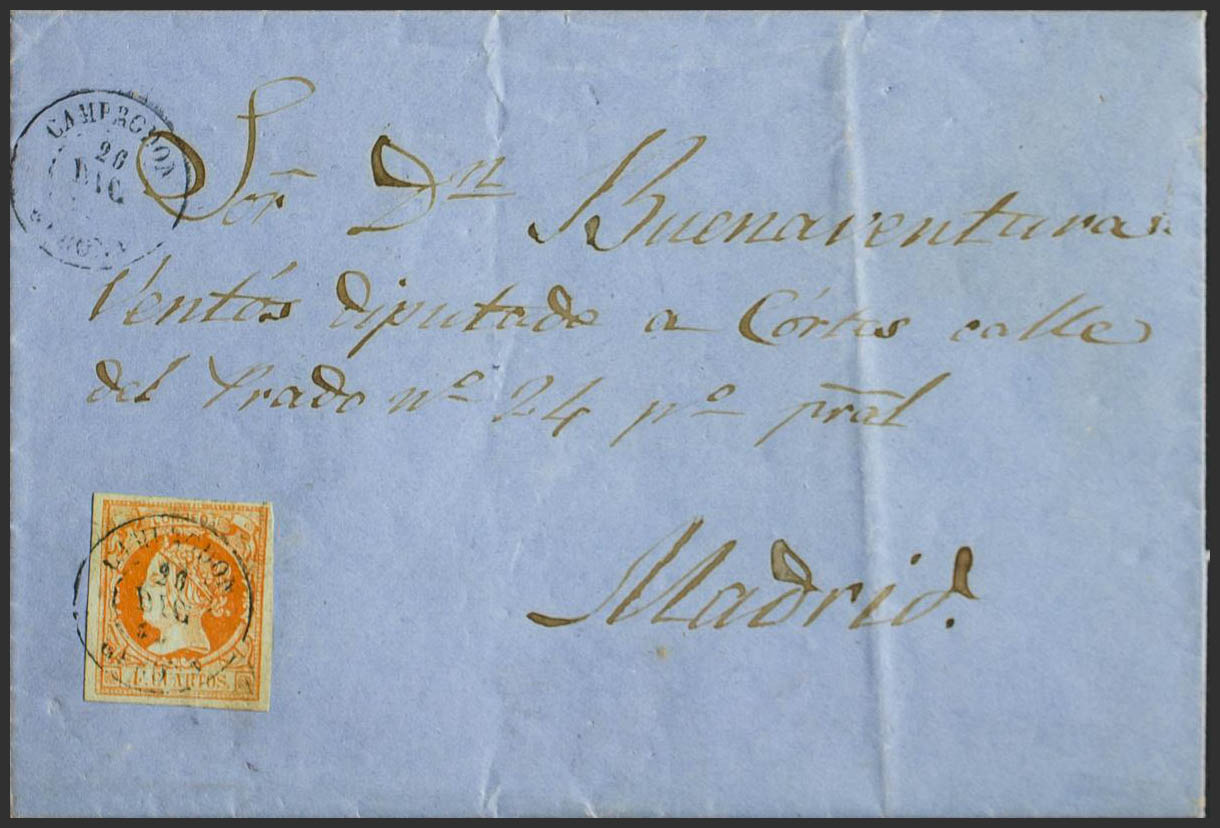 CAMPRODON
26
DIC
GERONA
Sor Dn Buenaventura
Ventós diputado a Córtes calle
del Prado nº 24 pº pral
Madrid.
CORREOS
CAMPRODON
26
DIC
4 CUARTOS.